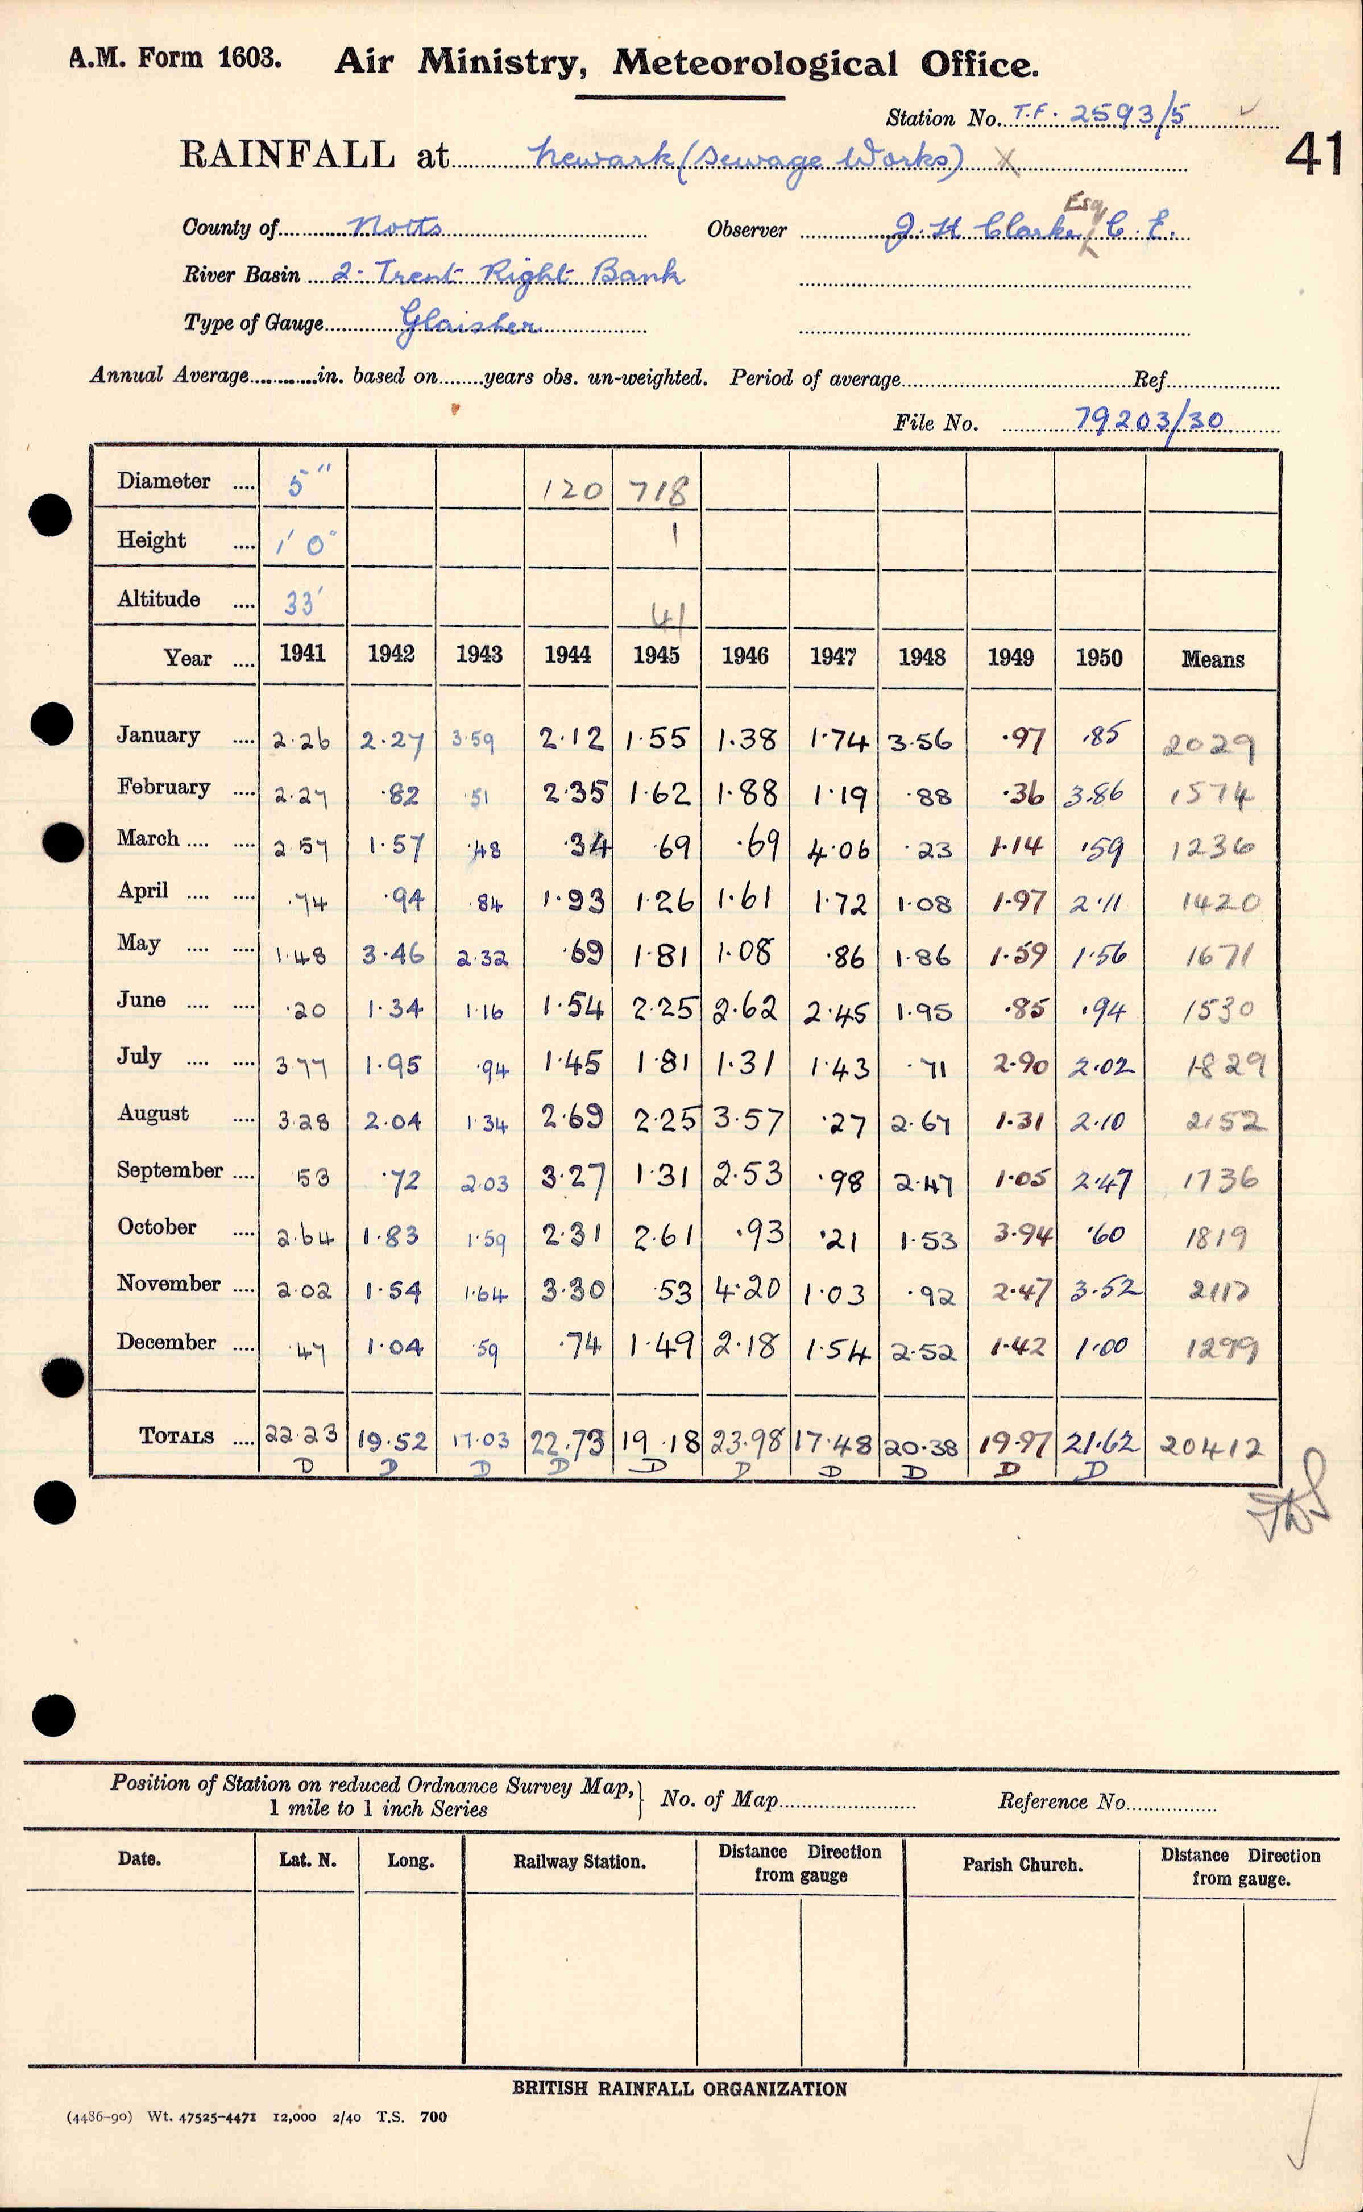 A.M. Form 1603. Air Ministry, Meteorological Office.
Station No. T.F. 2593/5
RAINFALL at Newark (Sewage Works) X
41
County of Notts Observer J. H Clarke Esq C. E.
River Basin 2. Trent Right Bank
Type of Gauge Glaisher
Annual Average in. based on years obs. un-weighted. Period of average Ref
File No. 79203/30
Diameter 5" 120 718
Height 1' 0" 1
Altitude 33' 41
Year 1941 1942 1943 1944 1945 1946 1947 1948 1949 1950 Means
January 2.26 2.27 3.59 2.12 1.55 1.38 1.74 3.56 .97 .85 2029
February 2.27 .82 .51 2.35 1.62 1.88 1.19 .88 .36 3.86 1574
March 2.57 1.57 .48 .34 .69 .69 4.06 .23 1.14 .59 1236
April .74 .94 .84 1.93 1.26 1.61 1.72 1.08 1.97 2.11 1420
May 1.48 3.46 2.32 .69 1.81 1.08 .86 1.86 1.59 1.56 1671
June .20 1.34 1.16 1.54 2.25 2.62 2.45 1.95 .85 .94 1530
July 3.77 1.95 .94 1.45 1.81 1.31 1.43 .71 2.90 2.02 1829
August 3.28 2.04 1.34 2.69 2.25 3.57 .27 2.67 1.31 2.10 2152
September .53 .72 2.03 3.27 1.31 2.53 .98 2.47 1.05 2.47 1736
October 2.64 1.83 1.59 2.31 2.61 .93 .21 1.53 3.94 .60 1819
November 2.02 1.54 1.64 3.30 .53 4.20 1.03 .92 2.47 3.52 2117
December .47 1.04 .59 .74 1.49 2.18 1.54 2.52 1.42 1.00 1299
TOTALS 22.23 19.52 17.03 22.73 19.18 23.98 17.48 20.38 19.97 21.62 20412
D D D D D D D D D D
Position of Station on reduced Ordnance Survey Map,
1 mile to 1 inch Series } No. of Map Reference No.
Date. Lat. N. Long. Railway Station. Distance Direction from gauge Parish Church. Distance Direction from gauge.
BRITISH RAINFALL ORGANIZATION
(4486-90) Wt. 47525-4471 12,000 2/40 T.S. 700